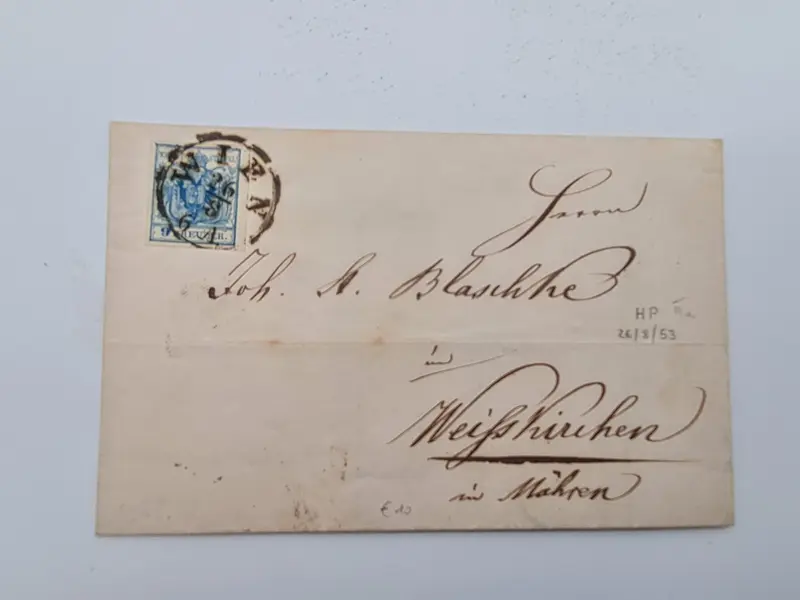 WIEN
26/8
9 KREUZER.
Herrn
Joh. St. Blaschke
HP IIIa
26/8/53
in
Weißkirchen
in Mähren
€ 10